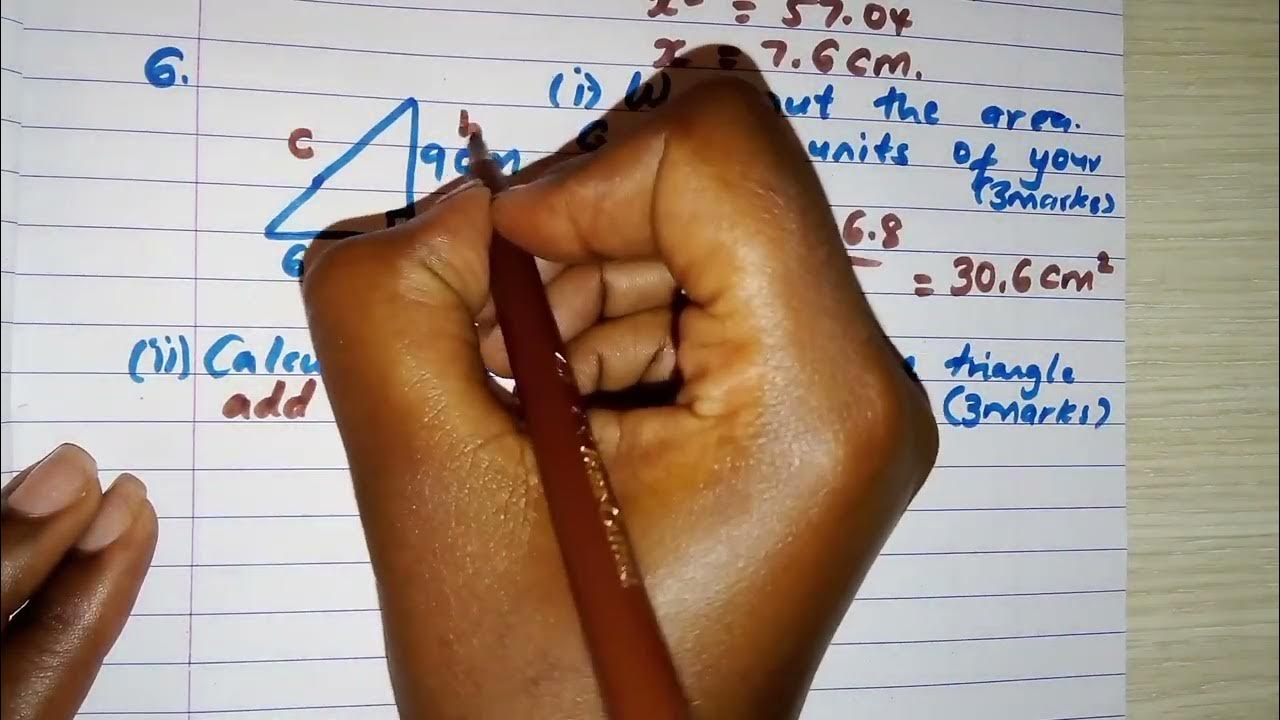 = 57.04
x = 7.6 cm.
6.
(i) out the area.
c
9cm
units of your
(3marks)
6.8
6
= 30.6 cm²
(ii) Calcu triangle
add (3marks)